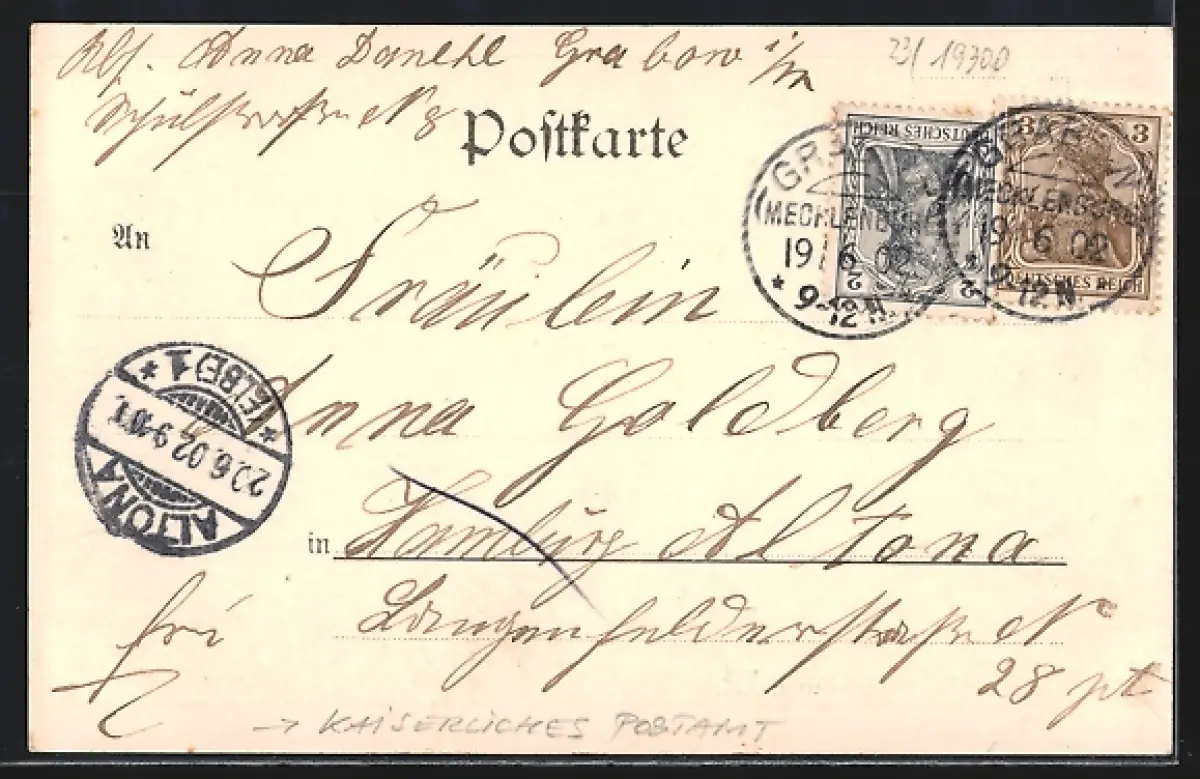 Abs. Anna Danehl Grabow i/M
23/ 19300
Schulstraße N 8
Postkarte
DEUTSCHES REICH
2 2
3 3
DEUTSCHES REICH
GRABOW
MECKLENBURG
19 6 02
* 9-12 N.
GRABOW
MECKLENBURG
19 6 02
* 9-12 N.
An
Fräulein
Anna Goldberg
in Hamburg Altona
Langenfelderstraße N
28 pt
frei
ALTONA
20.6.02 9-10 V.
* (ELBE) 1 *
→ KAISERLICHES POSTAMT